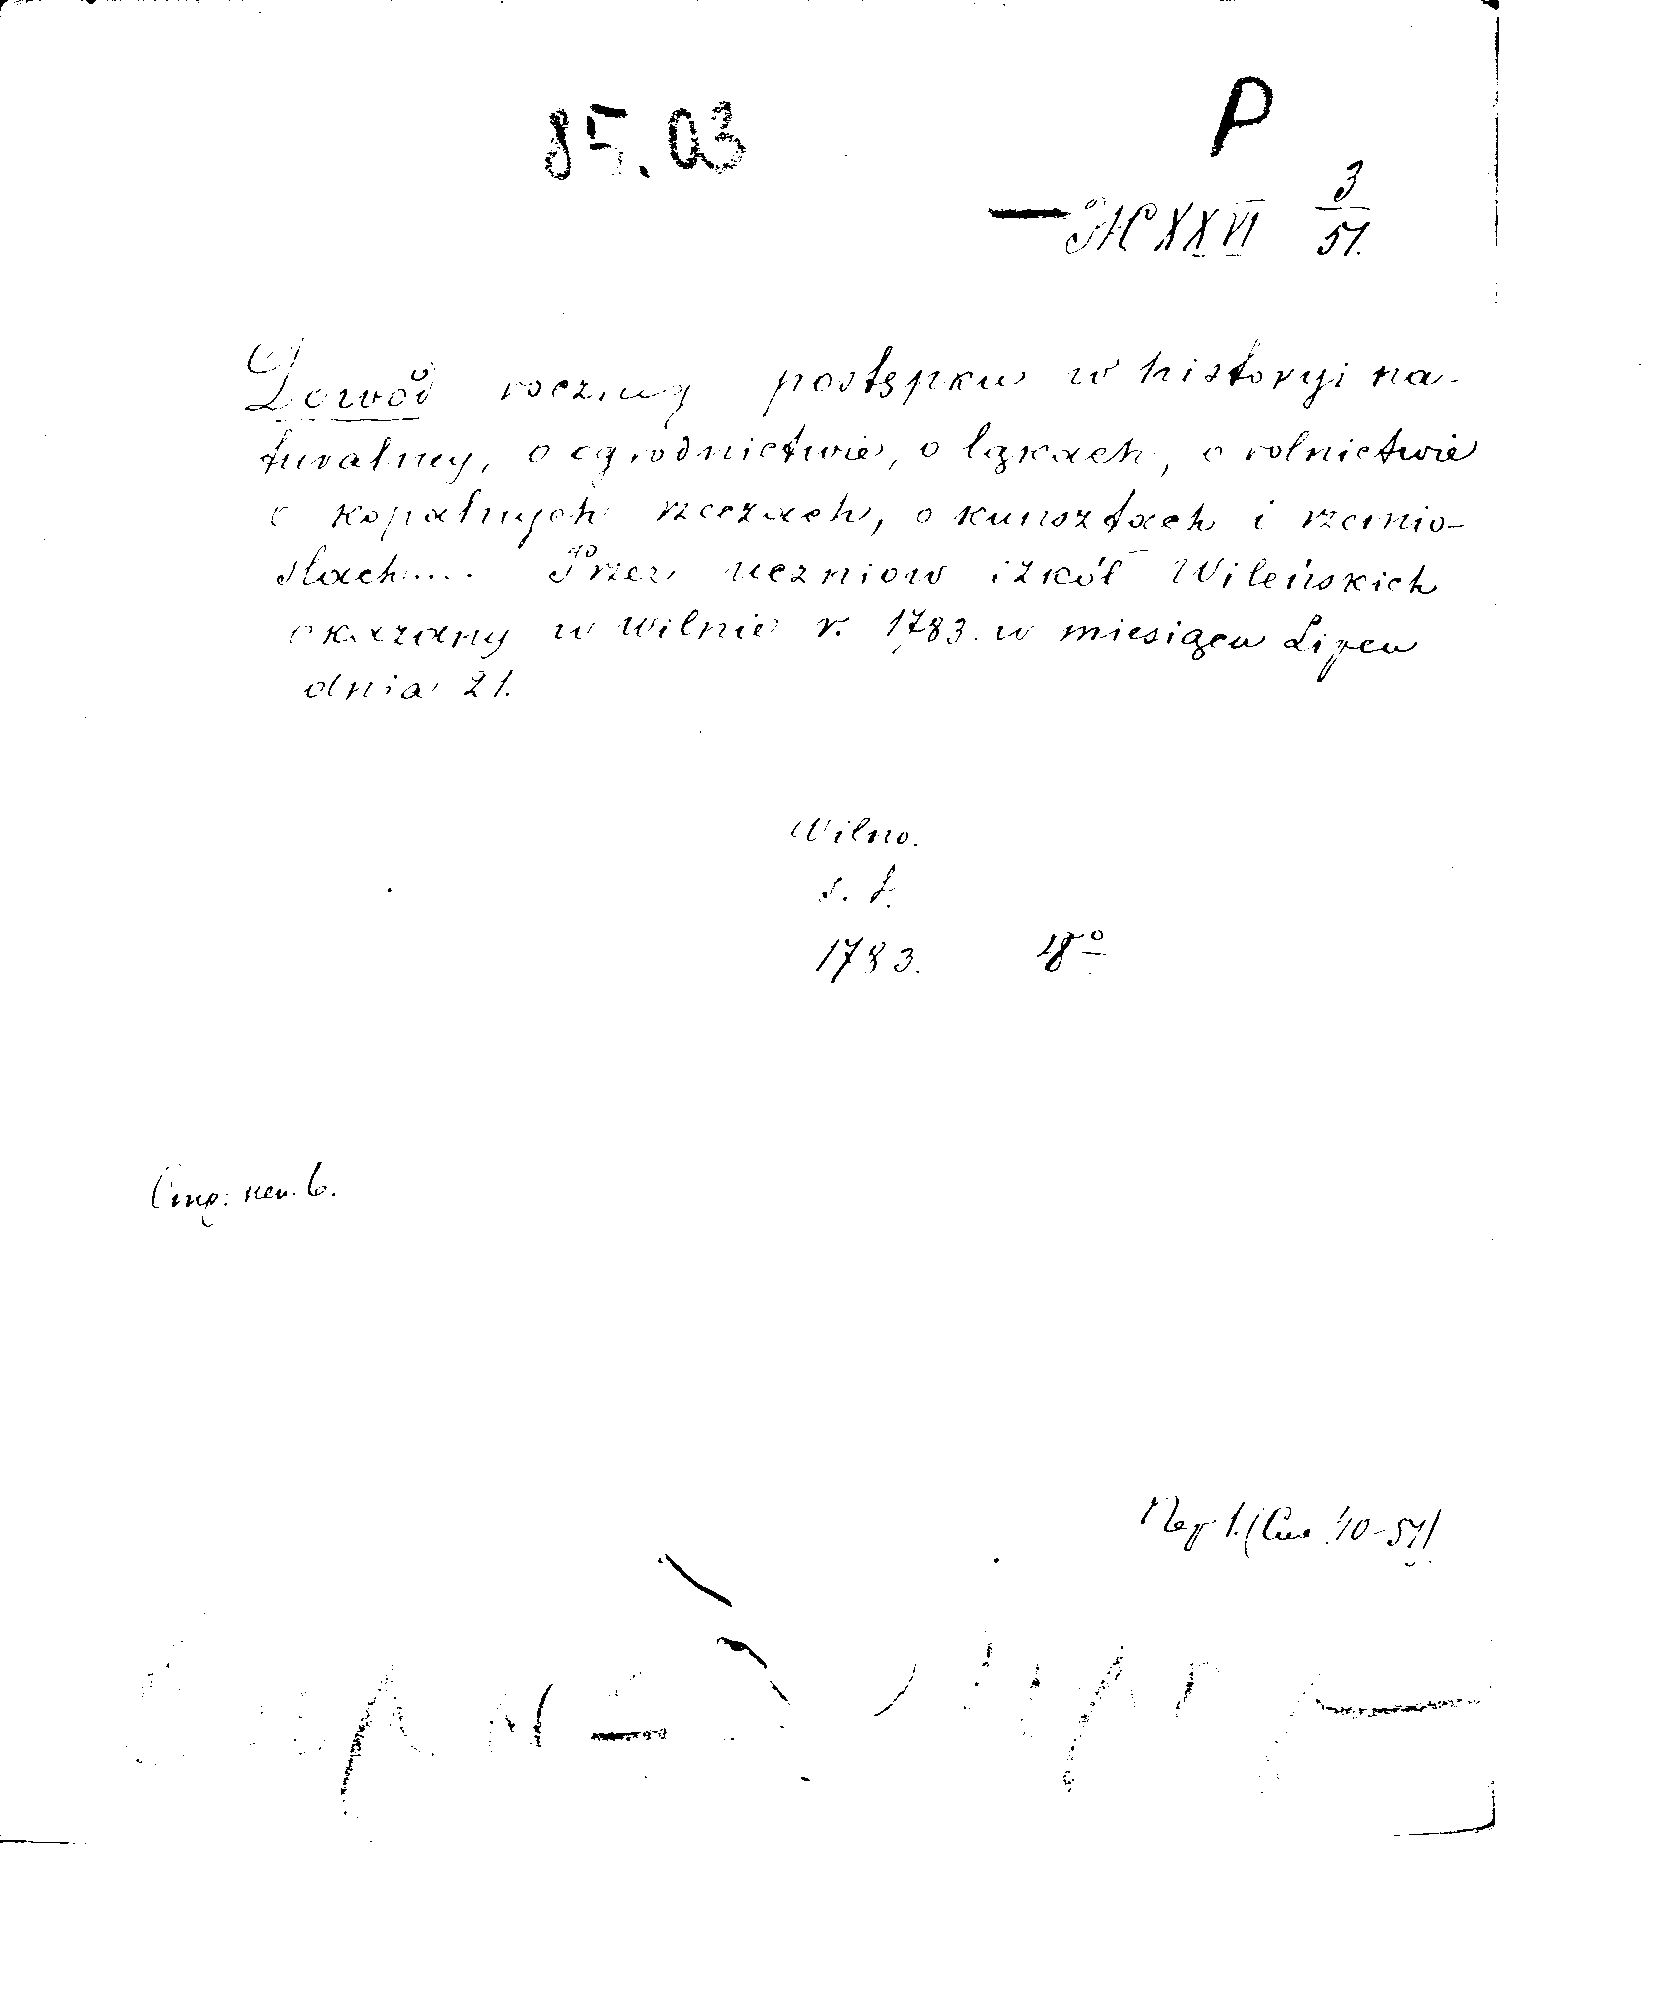 85.03
P
Ж XXVI 3/51.
Dowód roczny postępku w historyi na-
turalney, o ogrodnictwie, o łąkach, o rolnictwie
o kopalnych rzeczach, o kunsztach i rzemio-
słach.... Przez uczniow szkół Wileńskich
okazany w Wilnie r. 1783. w miesiącu Lipcu
dnia 21.
Wilno.
s. t.
1783. 18º
Пер 1. (Сис. 40-51)